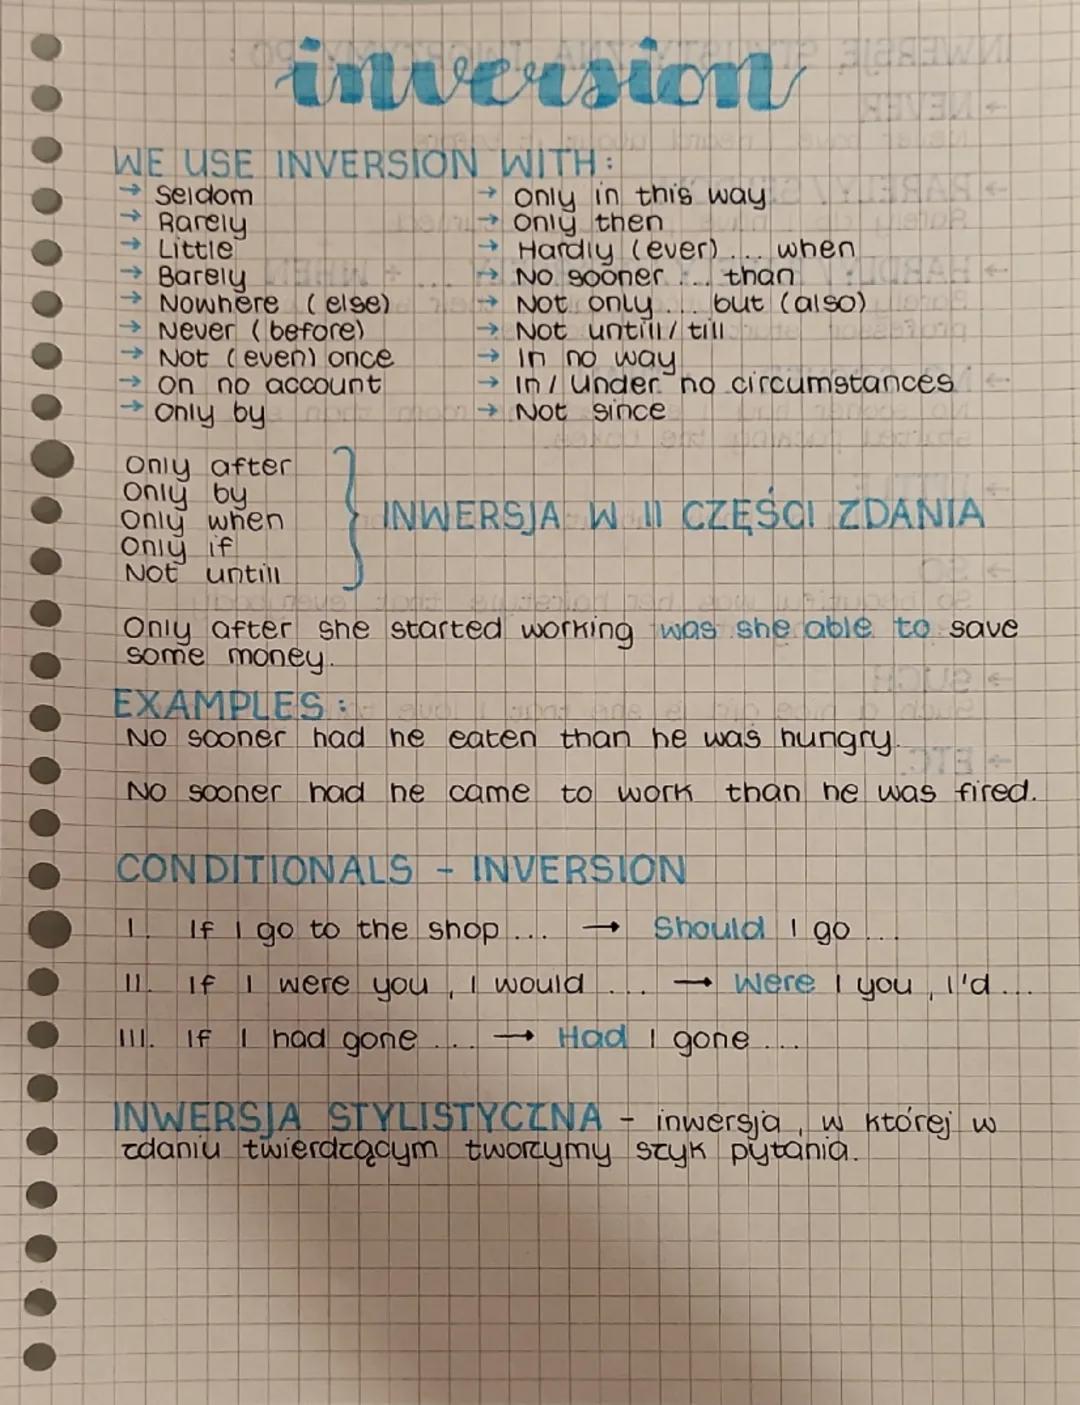 inversion
WE USE INVERSION WITH:
→ Seldom
→ Rarely
→ Little
→ Barely
→ Nowhere (else)
→ Never (before)
→ Not (even) once
→ On no account
→ Only by
→ Only in this way
→ Only then
→ Hardly (ever) ... when
→ No sooner ... than
→ Not only ... but (also)
→ Not untill / till
→ In no way
→ In / Under no circumstances
→ Not since
Only after
Only by
Only when
Only if
Not untill
INWERSJA W II CZĘŚCI ZDANIA
Only after she started working was she able to save
some money.
EXAMPLES:
No sooner had he eaten than he was hungry.
No sooner had he came to work than he was fired.
CONDITIONALS - INVERSION
I. If I go to the shop ... → Should I go ...
II. If I were you, I would ... → Were I you, I'd ...
III. If I had gone ... → Had I gone ...
INWERSJA STYLISTYCZNA - inwersja, w której w
zdaniu twierdzącym tworzymy szyk pytania.